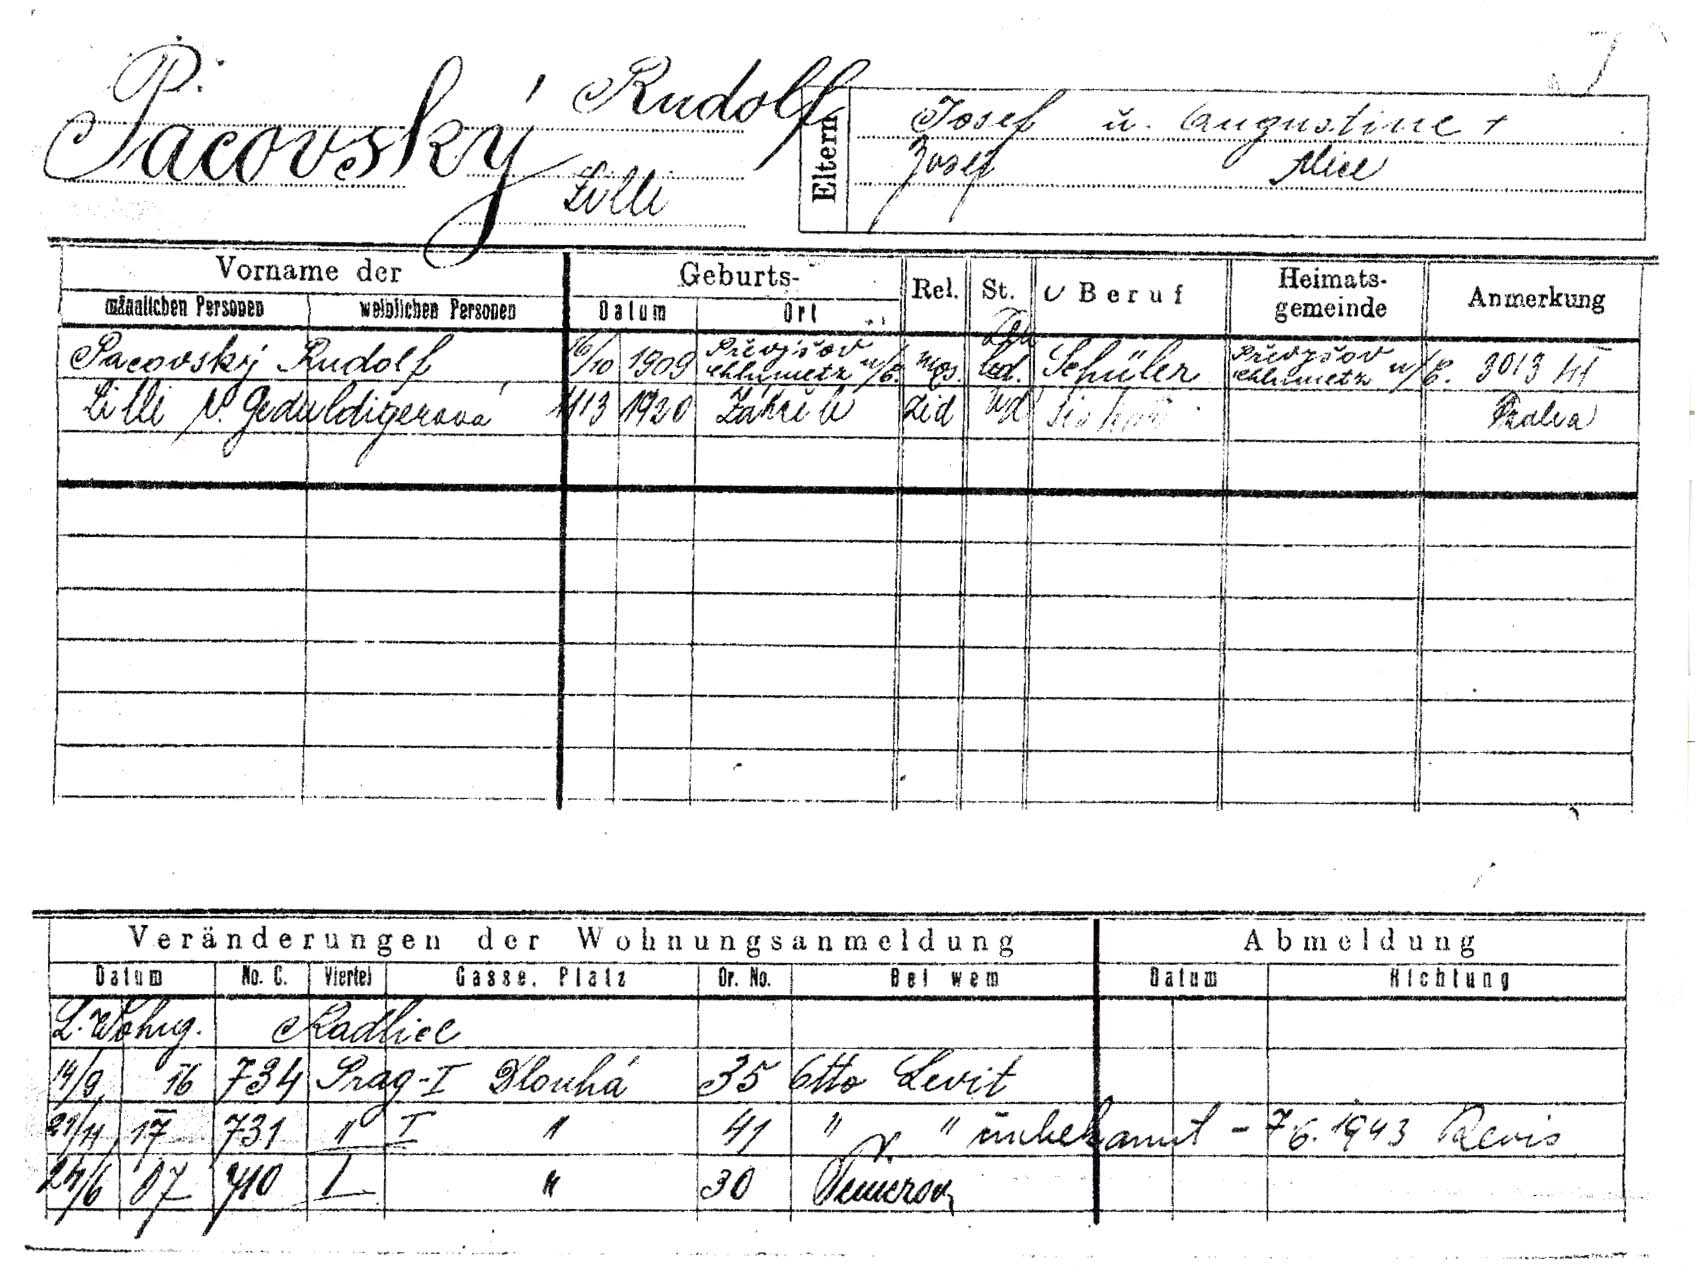 Pacovský Rudolf
Lilli
Eltern
Josef u. Augustine +
Josef Alice
Vorname der
männlichen Personen
weiblichen Personen
Geburts-
Datum
Ort
Rel.
St.
Beruf
Heimats-
gemeinde
Anmerkung
Pacovský Rudolf 16/10 1909 Převýšov n/C. mos. led. Schüler Převýšov n/C. 3013
Lilli r. Geduldigerová 1920 žid Praha
Veränderungen der Wohnungsanmeldung
Abmeldung
Datum
No. C.
Viertel
Gasse, Platz
Or. No.
Bei wem
Datum
Richtung
L. Wohng. Radlice
14/9 16 734 Prag-I Dlouhá 35 Otto Levit
21/11 17 731 " I " 41 " " unbekannt - 7/6. 1943 Revis
24/6 07 710 I " 30